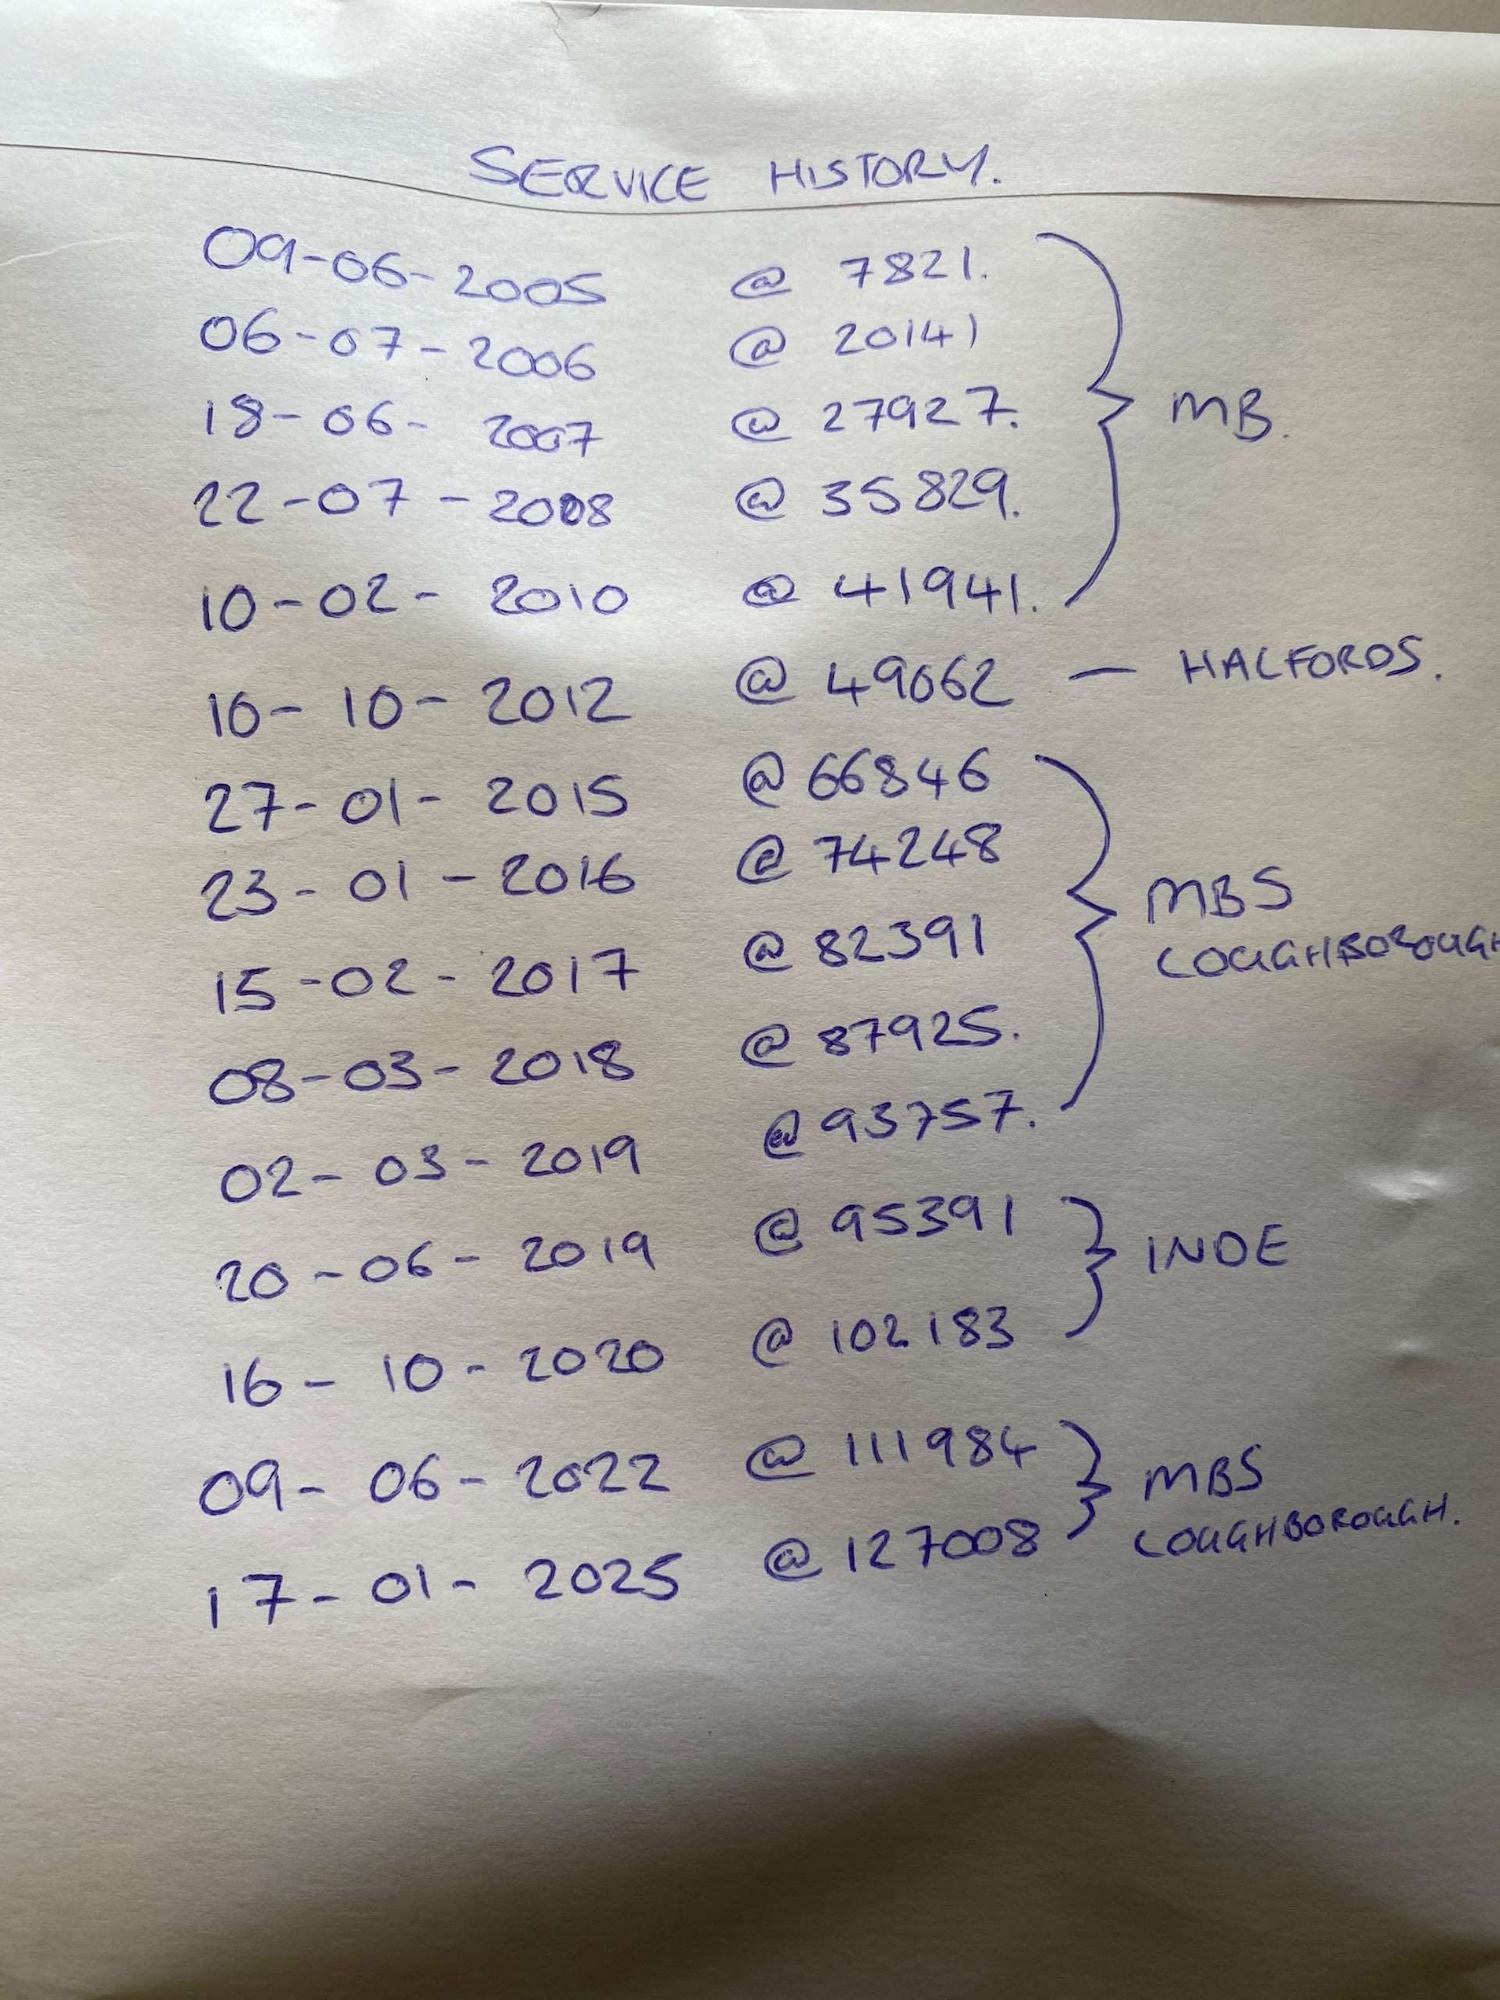 SERVICE HISTORY.
09-06-2005 @ 7821.
06-07-2006 @ 20141
18-06-2007 @ 27927.
MB.
22-07-2008 @ 35829.
10-02-2010 @ 41941.
10-10-2012 @ 49062 — HALFORDS.
27-01-2015 @ 66846
23-01-2016 @ 74248
MBS
LOUGHBOROUGH
15-02-2017 @ 82391
08-03-2018 @ 87925.
02-03-2019 @ 93757.
20-06-2019 @ 95391
INDE
16-10-2020 @ 102183
09-06-2022 @ 111984
MBS
LOUGHBOROUGH.
17-01-2025 @ 127008